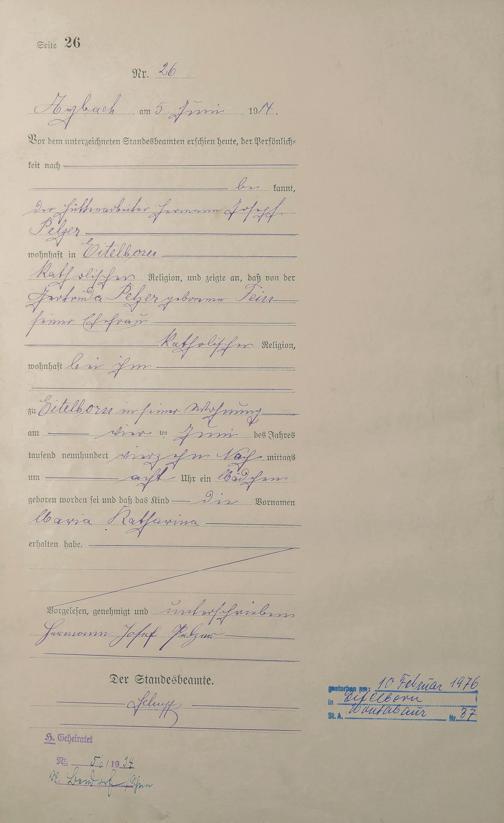 Seite 26
Nr. 26
Arzbach am 5 Juni 1914.
Vor dem unterzeichneten Standesbeamten erschien heute, der Persönlich-
keit nach
be kannt,
der Hüttenarbeiter Hermann Josef
Pelzer
wohnhaft in Eitelborn
katholischer Religion, und zeigte an, daß von der
Gertruda Pelzer geborene
seiner Ehefrau
katholischer Religion,
wohnhaft bei ihm
zu Eitelborn in seiner Wohnung
am vier ten Juni des Jahres
tausend neunhundert vierzehn Nach mittags
um acht Uhr ein Mädchen
geboren worden sei und daß das Kind die Vornamen
Maria Katharina
erhalten habe.
Vorgelesen, genehmigt und unterschrieben
Hermann Josef Pelzer
Der Standesbeamte.
H. Geheiratet
Nr. /1937
Bendorf Rhein
gestorben am: 15 Februar 1976
in Eitelborn
St. A. Montabaur Nr. 37